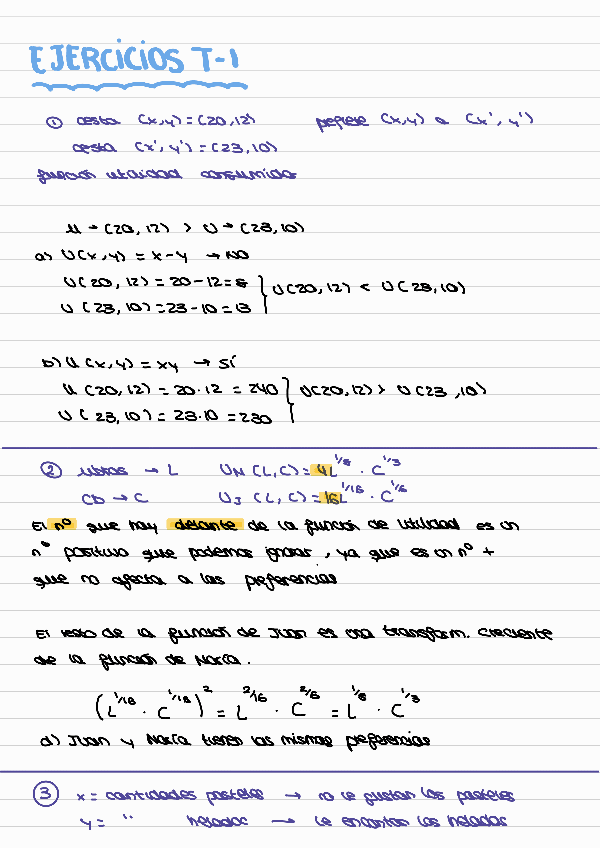 EJERCICIOS T-1
① cesta (x,y)=(20,12) prefiere (x,y) a (x',y')
cesta (x',y')=(23,10)
función utilidad consumidor
U→(20,12) > U→(23,10)
a) U(x,y) = x-y → NO
U(20,12) = 20-12 = 8 } U(20,12) < U(23,10)
U(23,10) = 23-10 = 13
b) U(x,y) = xy → SÍ
U(20,12) = 20·12 = 240 } U(20,12) > U(23,10)
U(23,10) = 23·10 = 230
② libros → L U_M(L,C) = 4L^1/8 · C^1/3
CD → C U_J(L,C) = 16L^1/16 · C^1/6
El nº que hay delante de la función de utilidad es un
nº positivo que podemos ignorar, ya que es un nº +
que no afecta a las preferencias
El resto de la función de Juan es una transform. creciente
de la función de María.
(L^1/16 · C^1/16)^2 = L^2/16 · C^2/6 = L^1/8 · C^1/3
d) Juan y María tienen las mismas preferencias
③ x = cantidades pasteles → no le gustan los pasteles
y = " helados → le encantan los helados